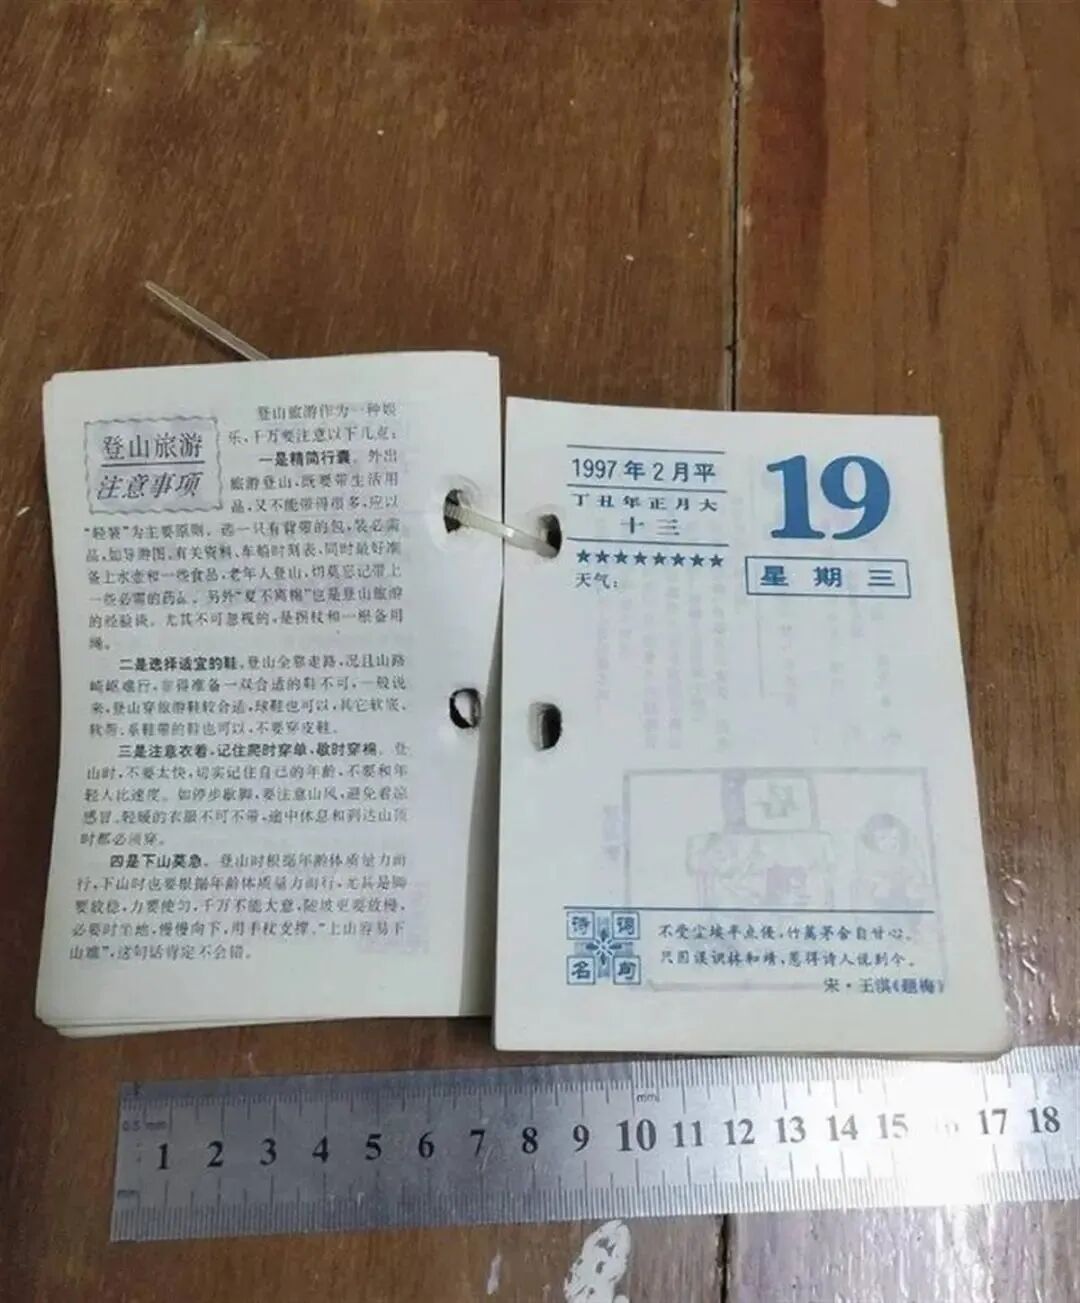 登山旅游
注意事项
登山旅游作为一种娱
乐,千万要注意以下几点:
一是精简行囊。外出
旅游登山,既要带生活用
品,又不能带得很多,应以
“轻装”为主要原则。选一只有背带的包,装必需
品,如导游图、有关资料、车船时刻表,同时最好准
备上水壶和一些食品,老年人登山,切莫忘记带上
一些必需的药品。另外“夏不离棉”也是登山旅游
的经验谈。尤其不可忽视的,是拐杖和一根备用
绳。
二是选择适宜的鞋。登山全靠走路,况且山路
崎岖难行,非得准备一双合适的鞋不可,一般说
来,登山穿旅游鞋较合适,球鞋也可以,其它软底、
软帮、系鞋带的鞋也可以,不要穿皮鞋。
三是注意衣着,记住爬时穿单,歇时穿棉。登
山时,不要太快,切实记住自己的年龄,不要和年
轻人比速度。如停步歇脚,要注意山风,避免着凉
感冒。轻暖的衣服不可不带,途中休息和到达山顶
时都必须穿。
四是下山莫急。登山时根据年龄体质量力而
行,下山时也要根据年龄体质量力而行,尤其是脚
要放稳,力要使匀,千万不能大意,陡坡更要放慢,
必要时坐地,慢慢向下,用手杖支撑。“上山容易下
山难”,这句话肯定不会错。
1997年2月平
丁丑年正月大
十三
★★★★★★★★
天气:
19
星期三
诗词
名句
不受尘埃半点侵,竹篱茅舍自甘心。
只因误识林和靖,惹得诗人说到今。
宋·王淇《题梅》
0.5mm
mm
mm
1 2 3 4 5 6 7 8 9 10 11 12 13 14 15 16 17 18